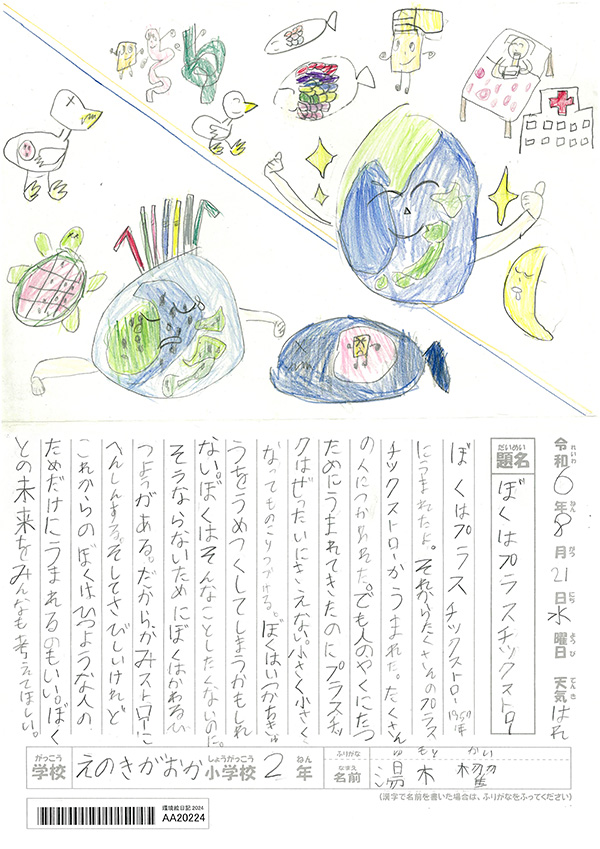 令和6年8月21日水曜日 天気はれ
れいわ ねん がつ にち ようび てんき
だいめい
題名
ぼくはプラスチックストロー
ぼくはプラスチックストロー
にうまれたよ。それからたくさんのプラス
チックストローがうまれた。たくさん
の人につかわれた。でも人のやくにたつ
ためにうまれてきたのにプラスチッ
クはぜったいにきえない。小さく小さく
なってものこりつづける。ぼくはいつかちきゅ
うをうめつくしてしまうかもしれ
ない。ぼくはそんなことしたくないのだ。
そうならないためにぼくはかわるひ
つようがある。だからかみストローに
へんしんする。そしてさびしいけれど
これからのぼくはひつような人の
ためだけにうまれるのもいい。ぼく
との未来をみんなも考えてほしい。
がっこう
学校
えのきがおか小学校2年
しょうがっこう ねん
ふりがな
なまえ
名前
ゆもと かい
湯木
(漢字で名前を書いた場合は、ふりがなをふってください)
環境絵日記2024
AA20224